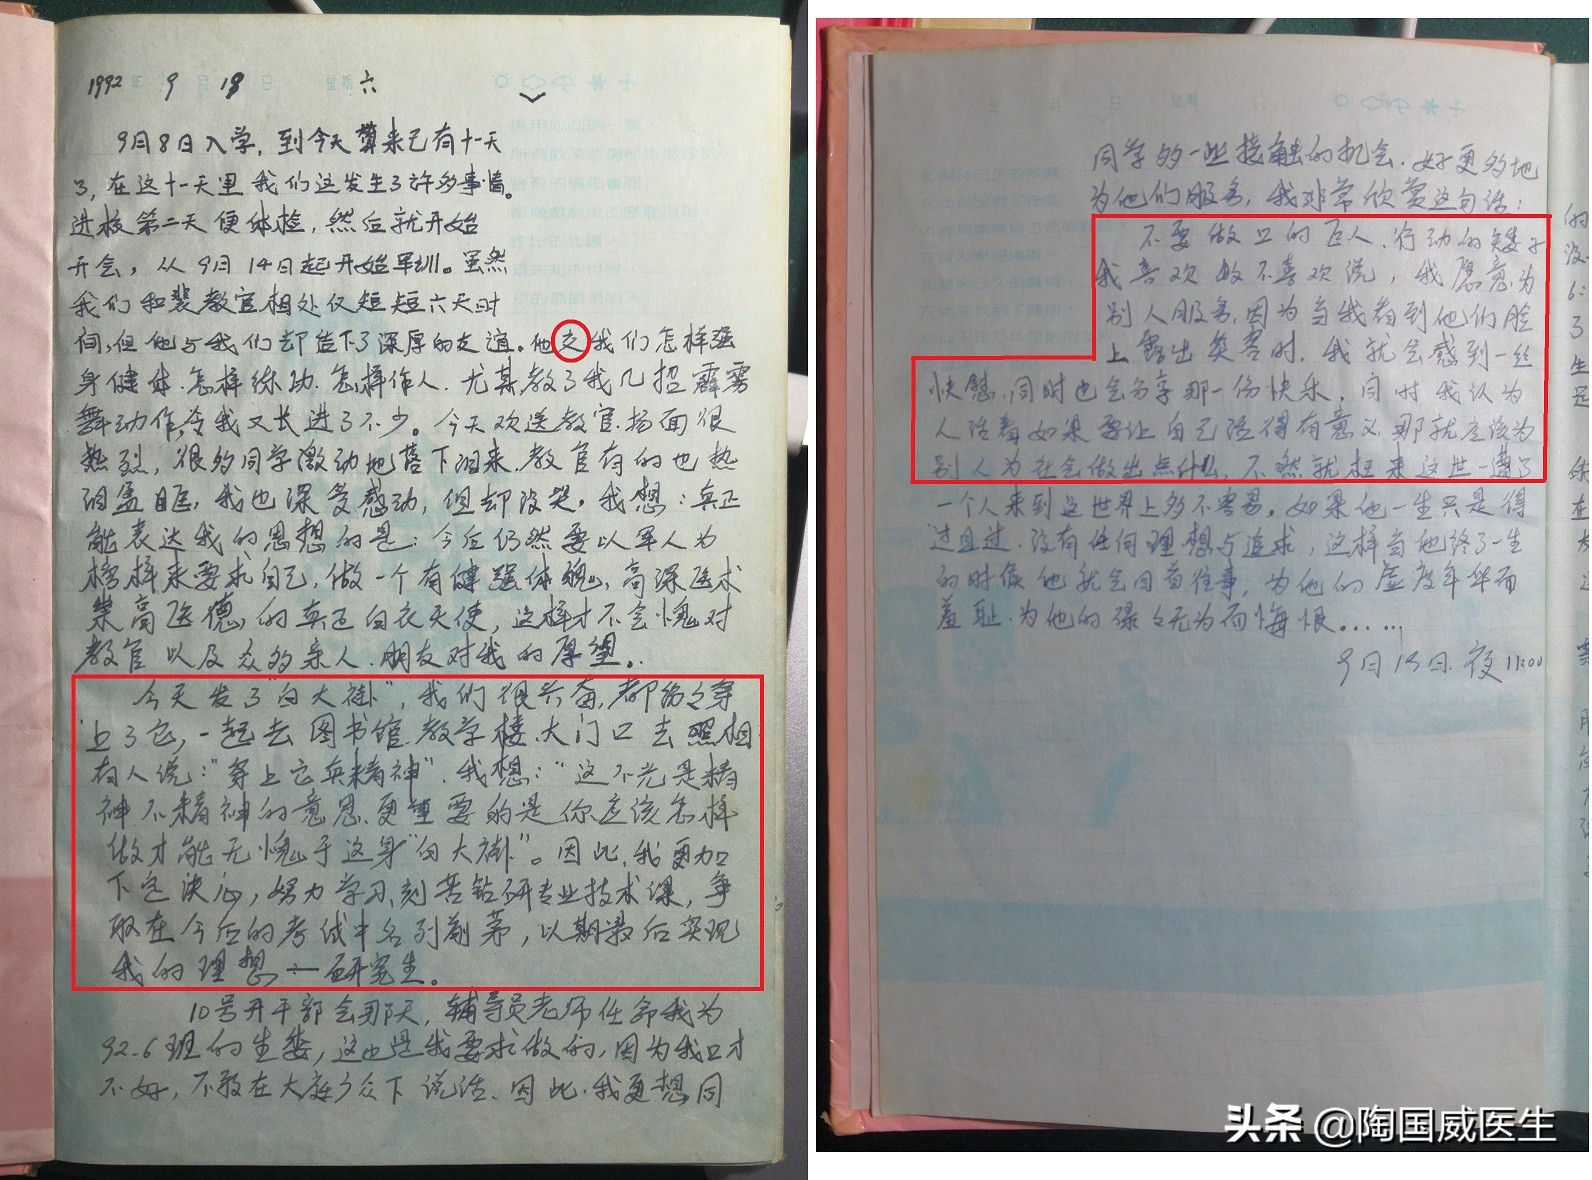 1992 9月19日 星期六
9月8日入学，到今天算来已有十一天
了，在这十一天里我们这发生了许多事情。
进校第二天便体检，然后就开始
开会，从9月14日起开始军训。虽然
我们和裴教官相处仅短短六天时
间，但他与我们却结下了深厚的友谊。他交我们怎样强
身健体．怎样练功．怎样作人．尤其教了我几招霹雳
舞动作，令我又长进了不少。今天欢送教官．场面很
热烈，很多同学激动地落下泪来．教官有的也热
泪盈眶，我也深受感动，但却没哭。我想：真正
能表达我的思想的是：今后仍然要以军人为
榜样来要求自己，做一个有健强体魄，高深医术
崇高医德，的真正白衣天使，这样才不会愧对
教官以及众多亲人．朋友对我的厚望。
今天发了“白大褂”，我们很兴奋，都纷纷穿
上了它，一起去图书馆．教学楼．大门口去照相
有人说：“穿上它真精神”．我想：“这不光是精
神不精神的意思．更重要的是你应该怎样
做才能无愧于这身“白大褂”。因此，我更加
下定决心，努力学习，刻苦钻研专业技术课，争
取在今后的考试中名列前茅，以期最后实现
我的理想——研究生。
10号开干部会那天，辅导员老师任命我为
92.6班的生委，这也是我要求做的，因为我口才
不好，不敢在大庭广众下说话．因此．我更想同
同学多一些接触的机会．好更多地
为他们服务，我非常欣赏这句话：
不要做口的巨人．行动的矮子
我喜欢做不喜欢说，我愿意为
别人服务，因为当我看到他们脸
上露出笑容时，我就会感到一丝
快慰，同时也会分享那一份快乐，同时我认为
人活着如果要让自己活得有意义，那就应该为
别人为社会做出点什么，不然就枉来这世一遭了
一个人来到这世界上多不容易，如果他一生只是得
过且过．没有任何理想与追求，这样当他终了一生
的时候他就会回首往事，为他的虚度年华而
羞耻．为他的碌々无为而悔恨……
9月19日．夜11:00
头条 @陶国威医生